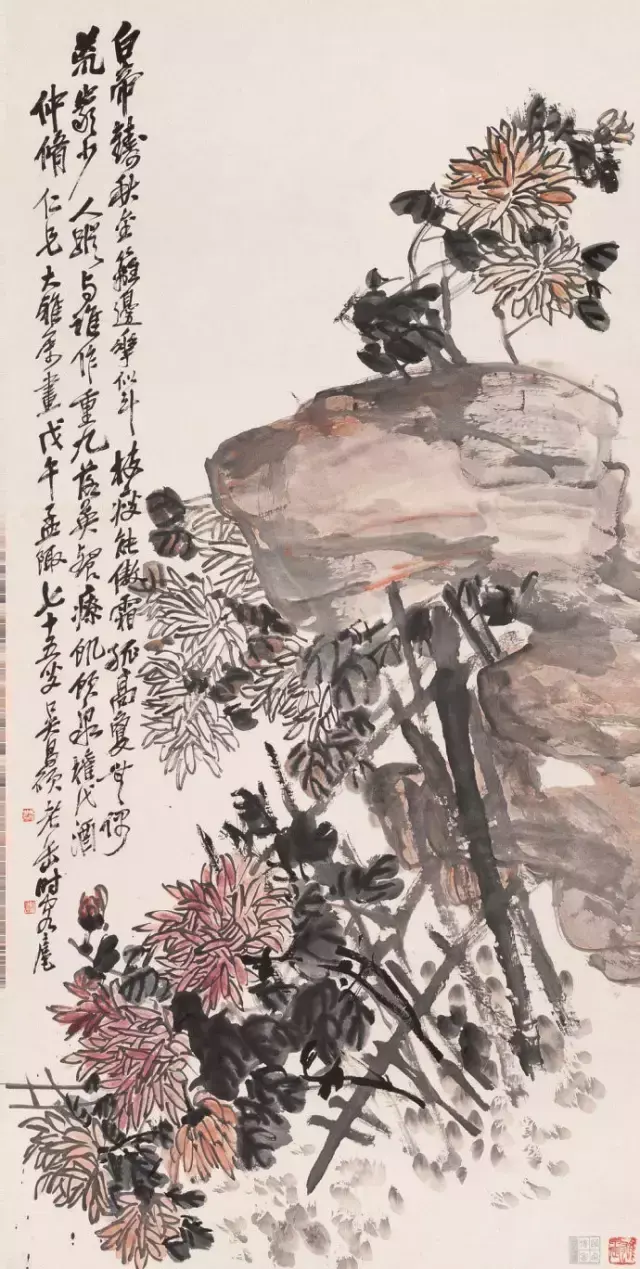 白帝鑄秋金籬邊華似斗枝瘦能傲霜孤高夐無偶
荒嵒少人蹤與誰作重九落英餐療飢飲泉權代酒
仲脩仁兄大雅屬畫戊午孟陬七十五叟吳昌碩老缶時客滬